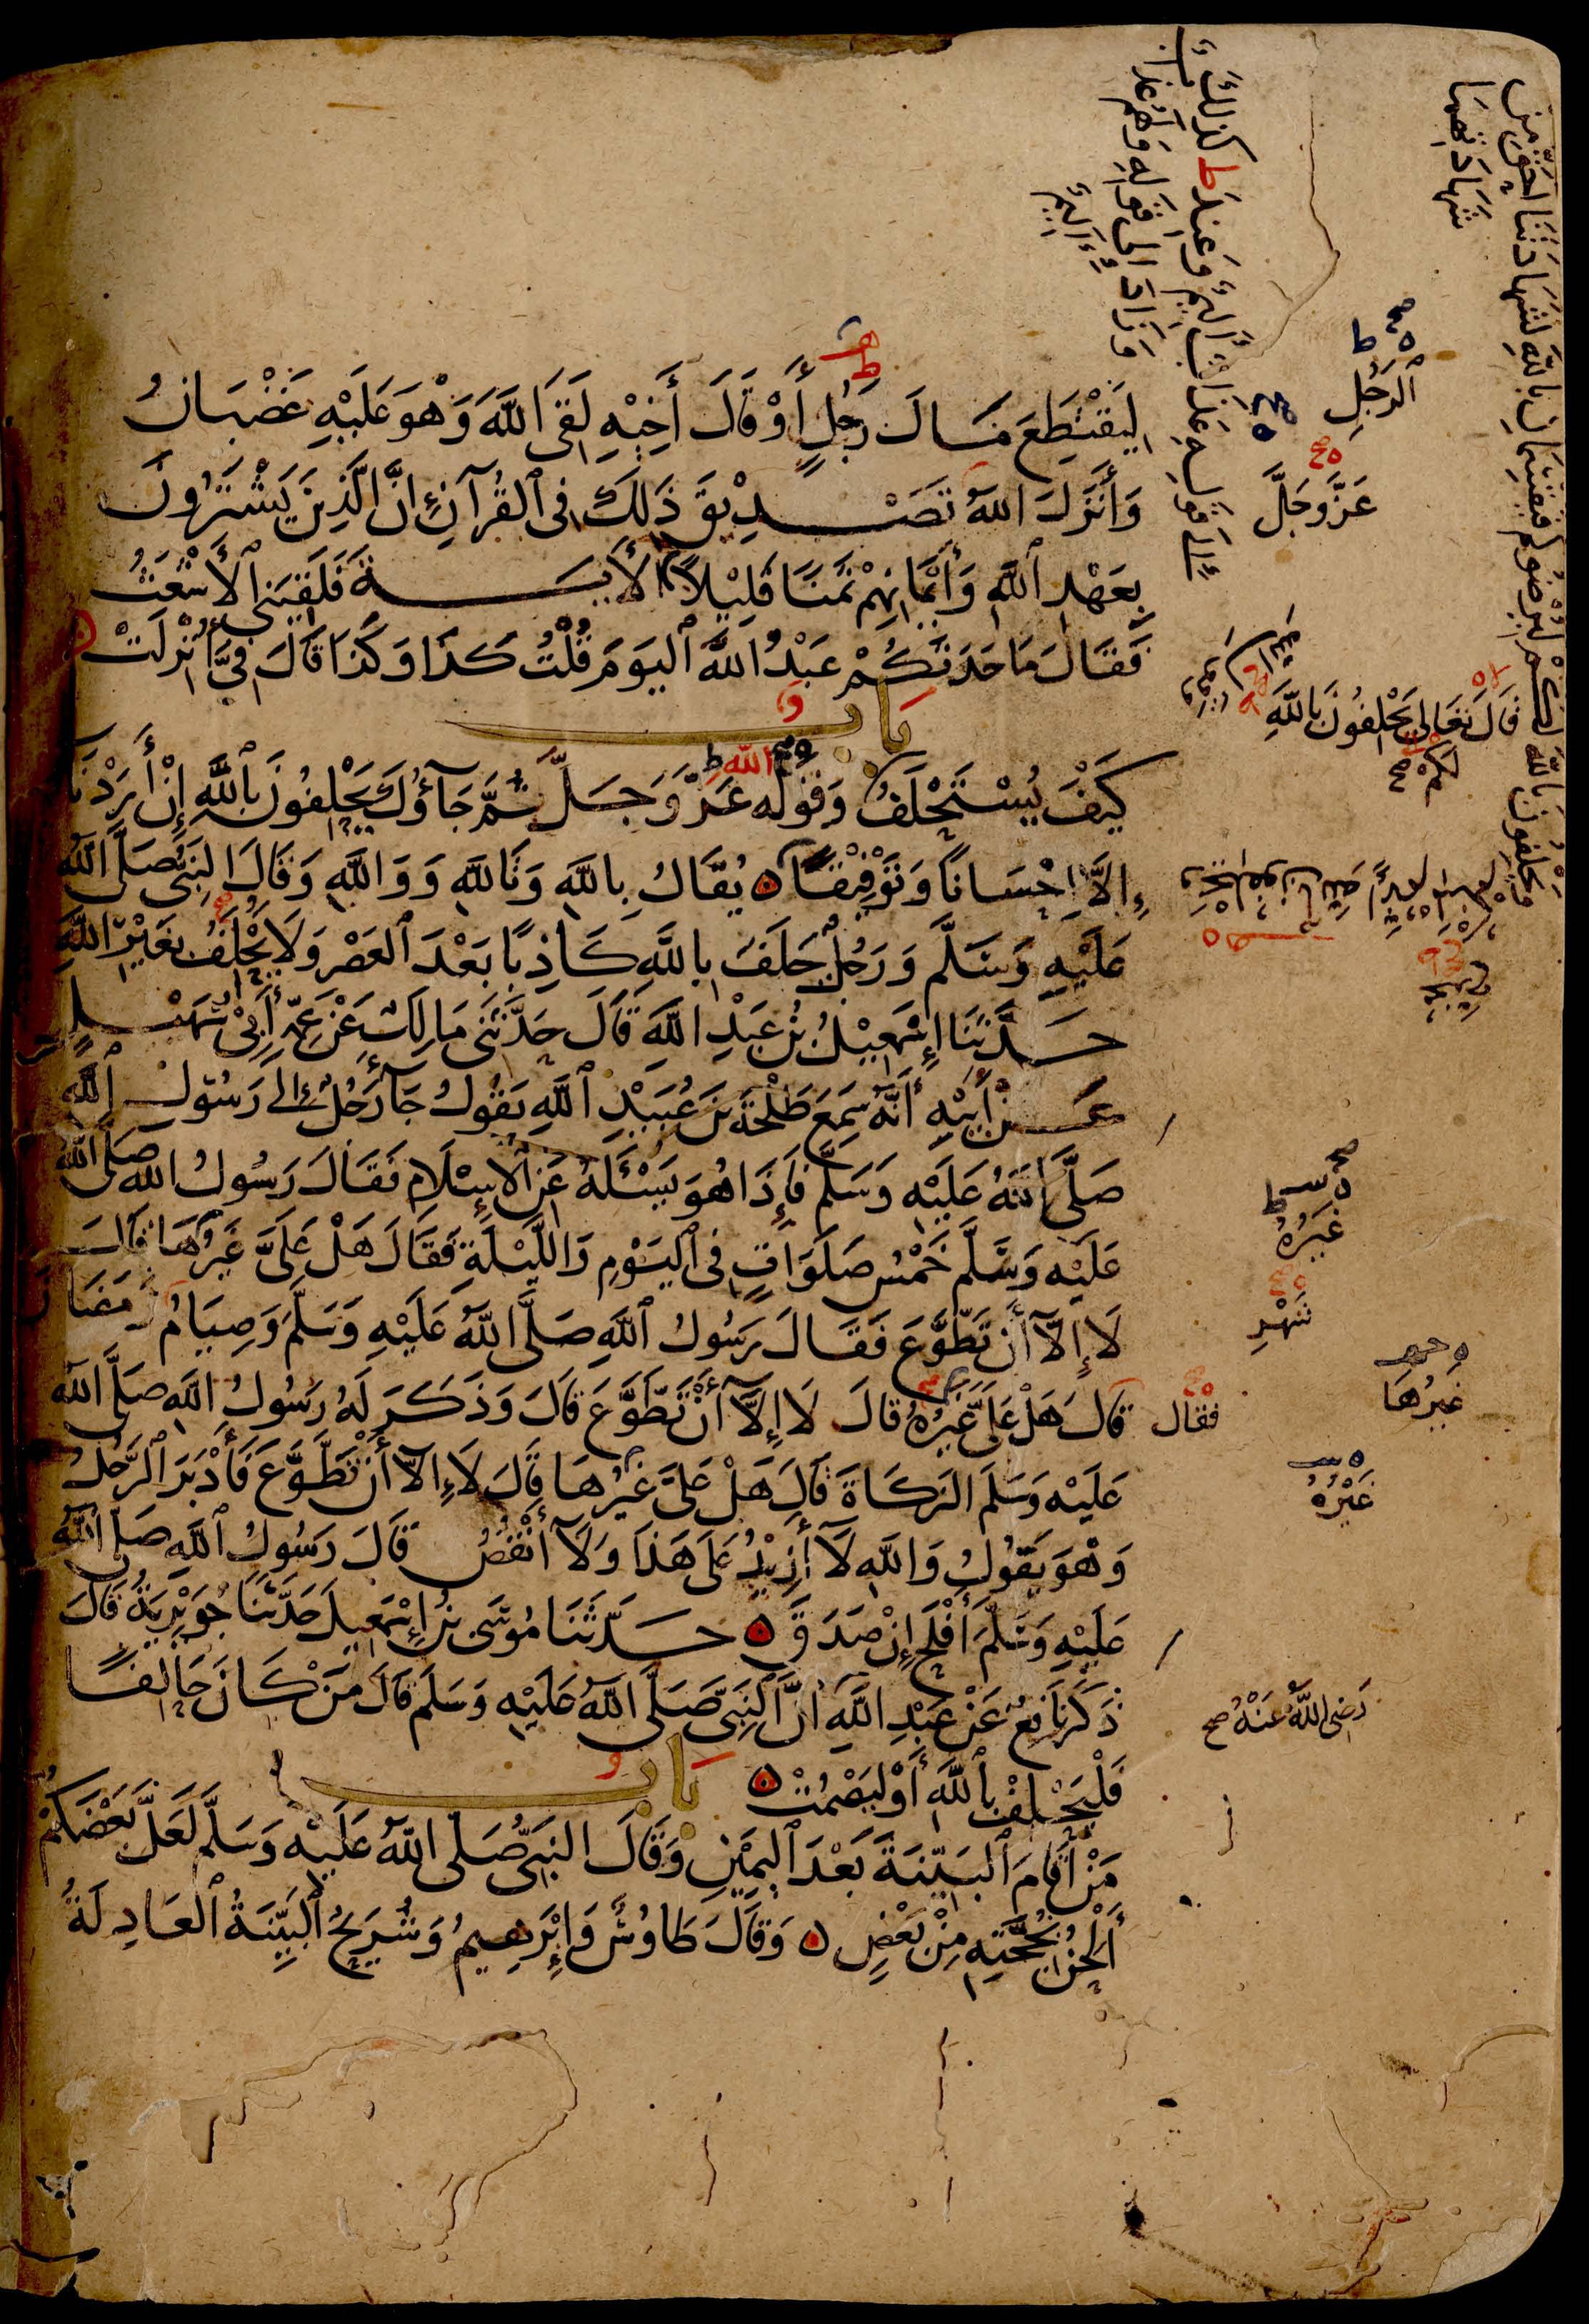 لِيَقْتَطِعَ مَالَ رَجُلٍ أَوْ قَالَ أَخِيْهِ لَقِىَ اللَّهَ وَهْوَ عَلَيْهِ غَضْبَانُ
وَأَنْزَلَ اللَّهُ تَصْدِيْقَ ذَلِكَ فِى ٱلْقُرْآنِ إِنَّ الَّذِينَ يَشْتَرُونَ
بِعَهْدِ ٱللَّهِ وَأَيْمَانِهِمْ ثَمَنًا قَلِيْلًا ٱلْأيَةَ فَلَقِيَنِى ٱلْأَشْعَثُ
فَقَالَ مَا حَدَثَكُمْ عَبْدُ اللَّهِ ٱليَوْمَ قُلْتُ كَذَا وَكَذَا قَالَ فِيَّ أُنْزِلَتْ
بَابٌ
كَيْفَ يُسْتَحْلَفُ وَقَوْلِهِ عَزَّ وَجَلَّ ثُمَّ جَآؤُكَ يَحْلِفُونَ بِٱللَّهِ إِنْ أَرَدْنَا
إِلَّا إِحْسَانًا وَتَوْفِيْقًا يُقَالُ بِاللَّهِ وَتَاللَّهِ وَوَاللَّهِ وَقَالَ النَّبِىُّ صَلَّى اللَّهُ
عَلَيْهِ وَسَلَّمَ وَرَجُلٌ حَلَفَ بِاللَّهِ كَاذِبًا بَعْدَ ٱلْعَصْرِ وَلَا يُحْلَفُ بِغَيْرِ اللَّهِ
حَدَّثَنَا إِسْمَعِيْلُ بْنُ عَبْدِ اللَّهِ قَالَ حَدَّثَنِى مَالِكٌ عَنْ عَمِّهِ أَبِىْ سُهَيْلٍ
عَنْ أَبِيْهِ أَنَّهُ سَمِعَ طَلْحَةَ بْنَ عُبَيْدِ ٱللَّهِ يَقُولُ جَآءَ رَجُلٌ إِلَى رَسُوْلِ ٱللَّهِ
صَلَّى اللَّهُ عَلَيْهِ وَسَلَّمَ فَإِذَا هُوَ يَسْئَلُهُ عَنِ ٱلْإِسْلَامِ فَقَالَ رَسُولُ اللَّهِ صَلَّى اللَّهُ
عَلَيْهِ وَسَلَّمَ خَمْسُ صَلَوَاتٍ فِى ٱلْيَوْمِ وَاللَّيْلَةِ فَقَالَ هَلْ عَلَىَّ غَيْرُهَا قَالَ
لَا إِلَّآ أَنْ تَطَّوَّعَ فَقَالَ رَسُولُ ٱللَّهِ صَلَّى اللَّهُ عَلَيْهِ وَسَلَّمَ وَصِيَامُ رَمَضَانَ
قَالَ هَلْ عَلَىَّ غَيْرُهُ قَالَ لَا إِلَّآ أَنْ تَطَّوَّعَ قَالَ وَذَكَرَ لَهُ رَسُولُ اللَّهِ صَلَّى اللَّهُ
عَلَيْهِ وَسَلَّمَ الزَّكَاةَ قَالَ هَلْ عَلَىَّ غَيْرُهَا قَالَ لَا إِلَّآ أَنْ تَطَّوَّعَ فَأَدْبَرَ ٱلرَّجُلُ
وَهْوَ يَقُولُ وَاللَّهِ لَآ أَزِيْدُ عَلَى هَذَا وَلَآ أَنْقُصُ قَالَ رَسُولُ ٱللَّهِ صَلَّى اللَّهُ
عَلَيْهِ وَسَلَّمَ أَفْلَحَ إِنْ صَدَقَ حَدَّثَنَا مُوسَى بْنُ إِسْمَعِيلَ حَدَّثَنَا جُوَيْرِيَةُ قَالَ
ذَكَرَ نَافِعٌ عَنْ عَبْدِ اللَّهِ أَنَّ ٱلنَّبِىَّ صَلَّى اللَّهُ عَلَيْهِ وَسَلَّمَ قَالَ مَنْ كَانَ حَالِفًا
فَلْيَحْلِفْ بِٱللَّهِ أَوْ لِيَصْمُتْ بَابُ
مَنْ أَقَامَ ٱلْبَيِّنَةَ بَعْدَ ٱلْيَمِيْنِ وَقَالَ النَّبِىُّ صَلَّى اللَّهُ عَلَيْهِ وَسَلَّمَ لَعَلَّ بَعْضَكُمْ
أَلْحَنُ بِحُجَّتِهِ مِنْ بَعْضٍ وَقَالَ طَاوُسٌ وَإِبْرَهِيمُ وَشُرَيْحٌ ٱلْبَيِّنَةُ ٱلْعَادِلَةُ
ٱلرَّجُلِ
عَزَّ وَجَلَّ
قَالَ تَعَالَى يَحْلِفُونَ بِاللَّهِ
لَكُمْ
غَيْرُهُ
شَهْرِ
غَيْرُهَا
فَقَالَ
غَيْرُهُ
رَضِىَ اللَّهُ عَنْهُ صح
كذلك
إلى قوله عذاب أليم وعند ط
وزاد إلى قوله ولهم عذاب
أليم
فيقسمان بالله لشهادتنا أحق من
شهادتهما